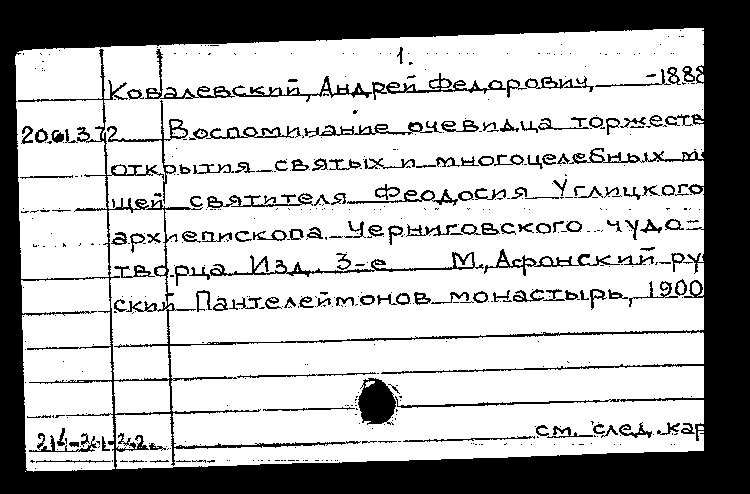 1.
Ковалевский, Андрей Федорович, -1888
20.61.3.72 Воспоминание очевидца торжеств
открытия святых и многоцелебных м
щей святителя Феодосия Углицкого
архиепископа Черниговского чудо-
творца. Изд. 3-е М., Афонский ру
ский Пантелеймонов монастырь, 1900
214-361-362. см. след. кар